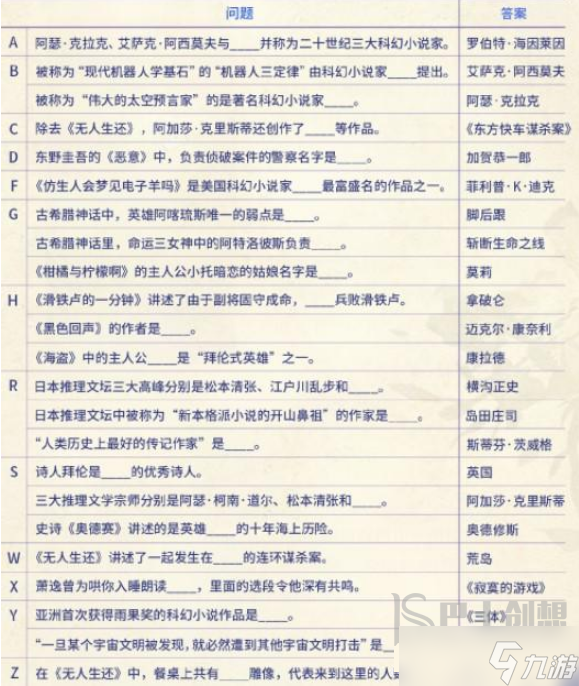 问题 答案
A 阿瑟·克拉克、艾萨克·阿西莫夫与____并称为二十世纪三大科幻小说家。 罗伯特·海因莱因
B 被称为“现代机器人学基石”的“机器人三定律”由科幻小说家____提出。 艾萨克·阿西莫夫
被称为“伟大的太空预言家”的是著名科幻小说家____。 阿瑟·克拉克
C 除去《无人生还》，阿加莎·克里斯蒂还创作了____等作品。 《东方快车谋杀案》
D 东野圭吾的《恶意》中，负责侦破案件的警察名字是____。 加贺恭一郎
F 《仿生人会梦见电子羊吗》是美国科幻小说家____最富盛名的作品之一。 菲利普·K·迪克
G 古希腊神话中，英雄阿喀琉斯唯一的弱点是____。 脚后跟
古希腊神话里，命运三女神中的阿特洛彼斯负责____。 斩断生命之线
《柑橘与柠檬啊》的主人公小托暗恋的姑娘名字是____。 莫莉
H 《滑铁卢的一分钟》讲述了由于副将固守成命，____兵败滑铁卢。 拿破仑
《黑色回声》的作者是____。 迈克尔·康奈利
《海盗》中的主人公____是“拜伦式英雄”之一。 康拉德
R 日本推理文坛三大高峰分别是松本清张、江户川乱步和____。 横沟正史
日本推理文坛中被称为“新本格派小说的开山鼻祖”的作家是____。 岛田庄司
“人类历史上最好的传记作家”是____。 斯蒂芬·茨威格
S 诗人拜伦是____的优秀诗人。 英国
三大推理文学宗师分别是阿瑟·柯南·道尔、松本清张和____。 阿加莎·克里斯蒂
史诗《奥德赛》讲述的是英雄____的十年海上历险。 奥德修斯
W 《无人生还》讲述了一起发生在____的连环谋杀案。 荒岛
X 萧逸曾为哄你入睡朗读____，里面的选段令他深有共鸣。 《寂寞的游戏》
Y 亚洲首次获得雨果奖的科幻小说作品是____。 《三体》
“一旦某个宇宙文明被发现，就必然遭到其他宇宙文明打击”是__
Z 在《无人生还》中，餐桌上共有____雕像，代表来到这里的人
巴士创想
九游